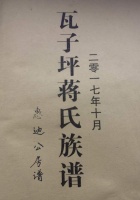 二零一七年十月
瓦子坪蒋氏族谱
迪公房谱